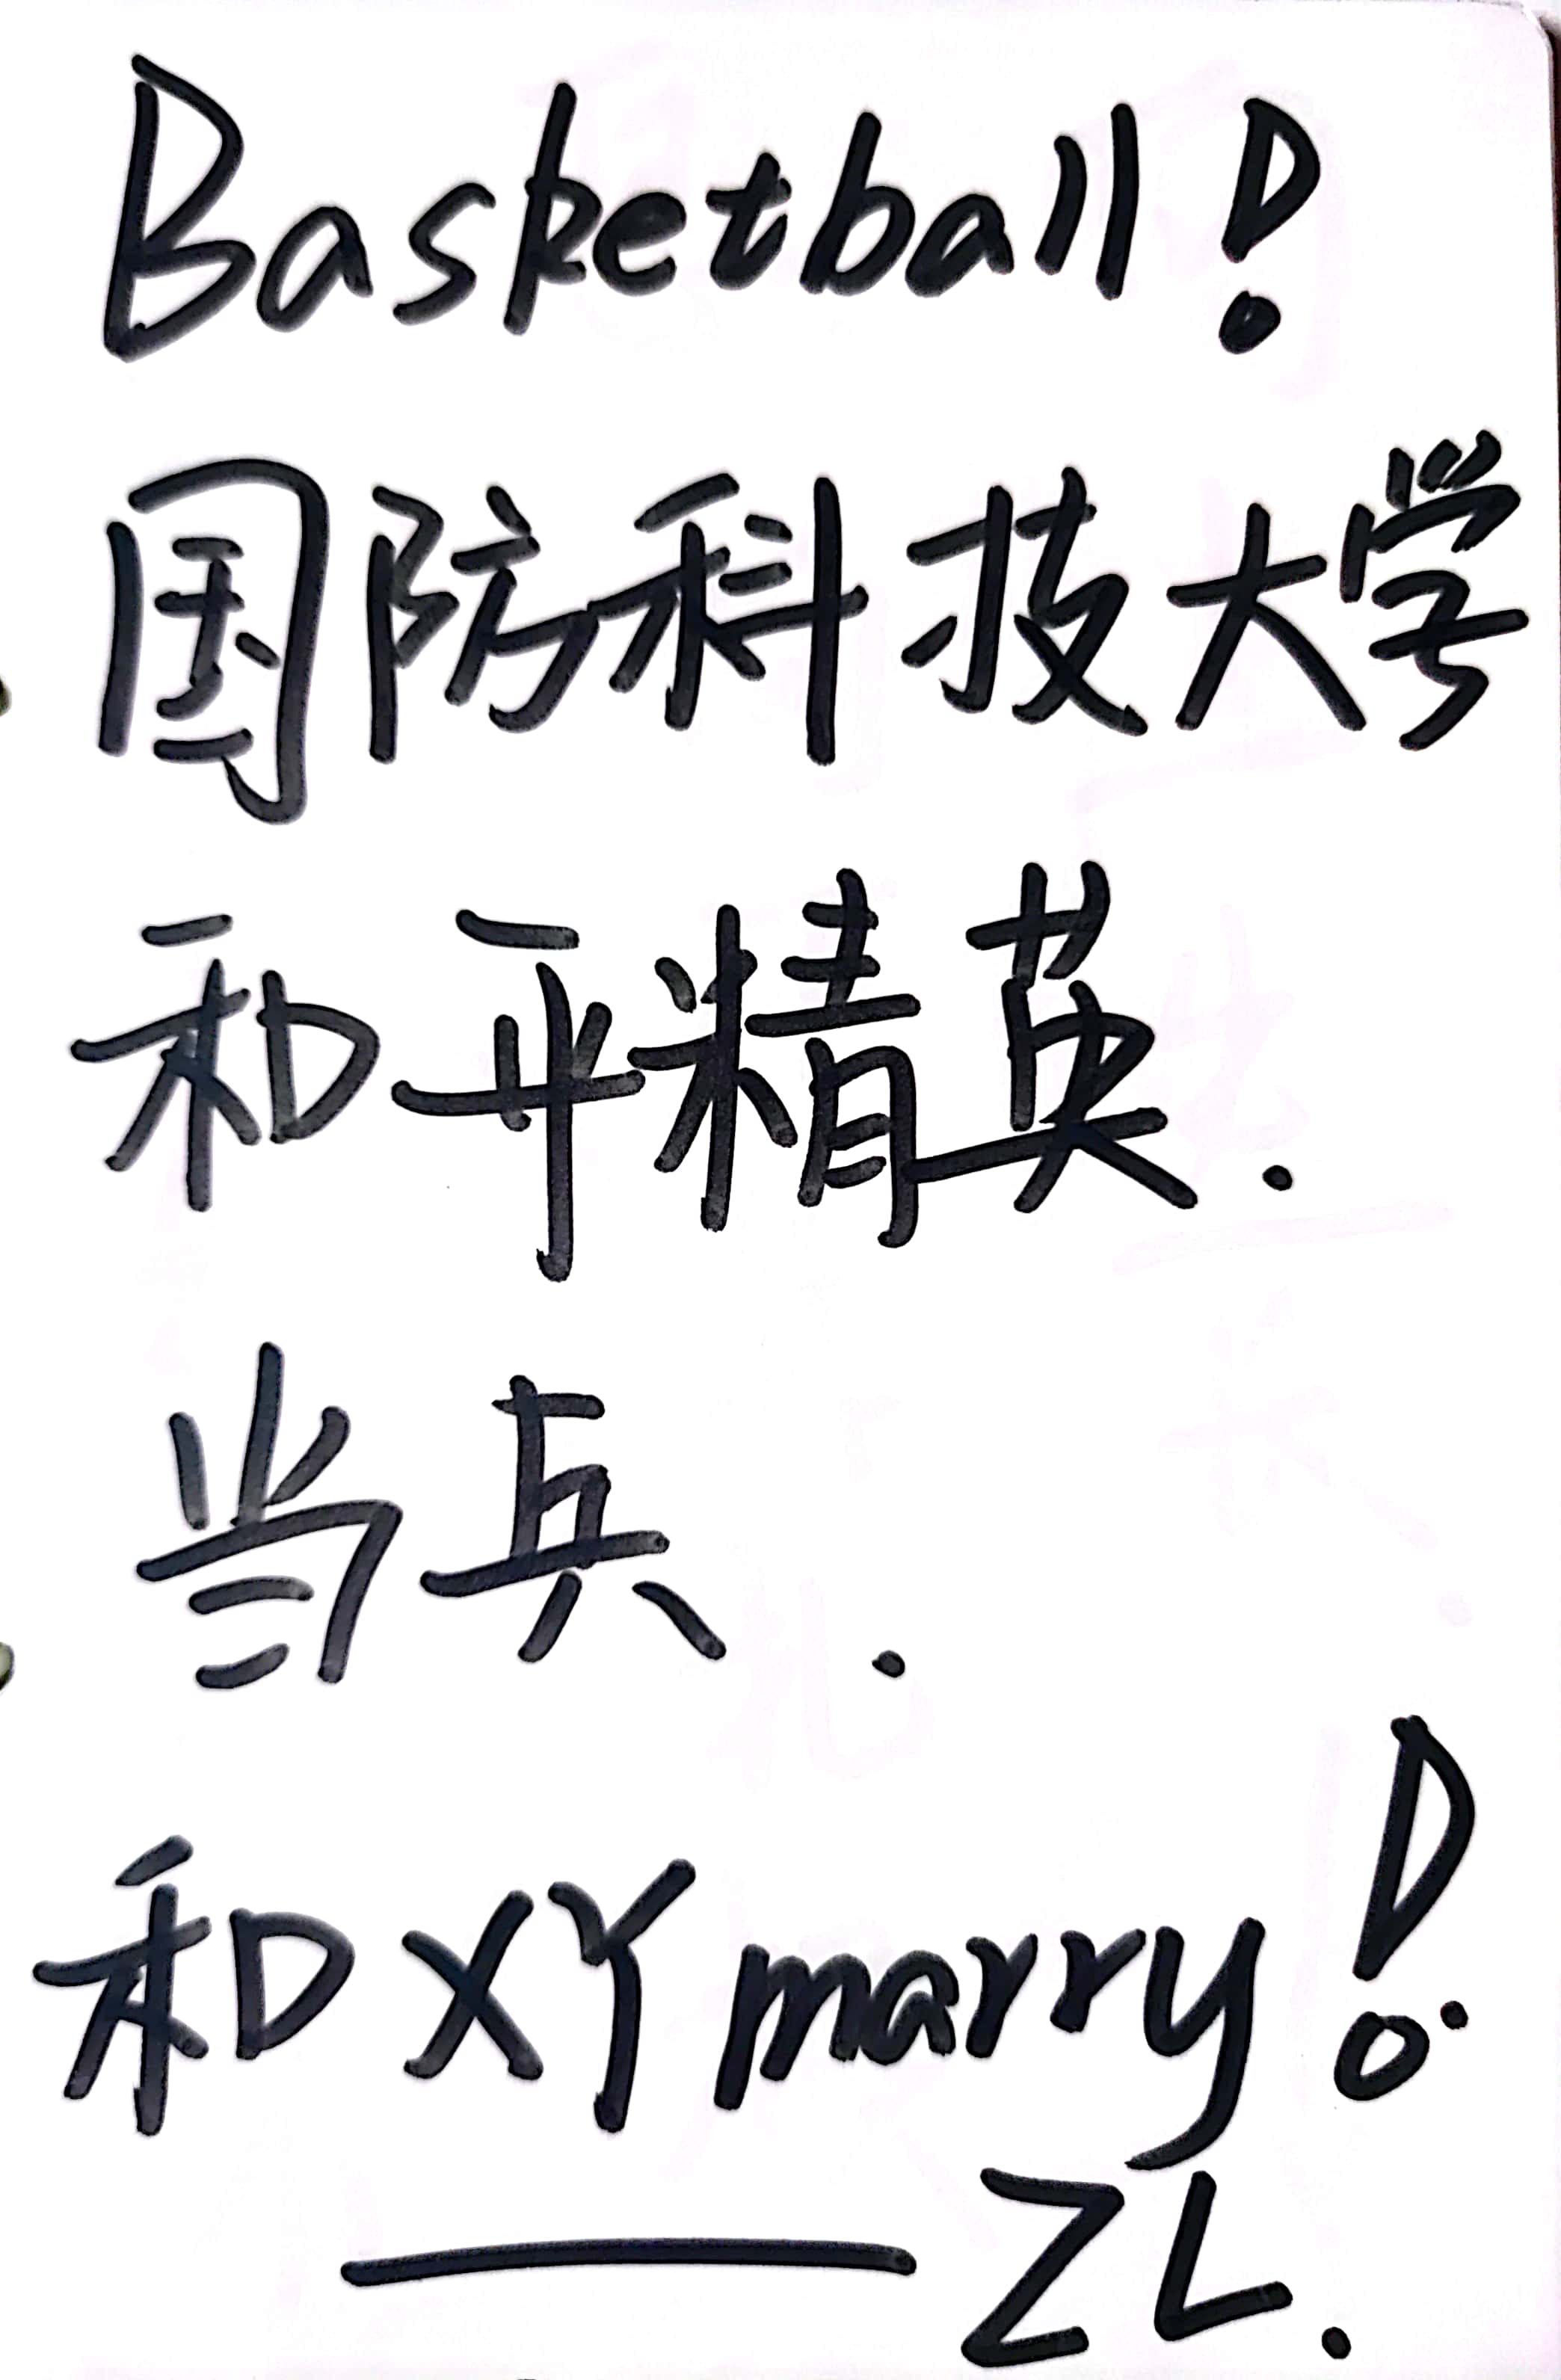 Basketball!
国防科技大学
和平精英.
当兵.
和XY marry!
——ZL.